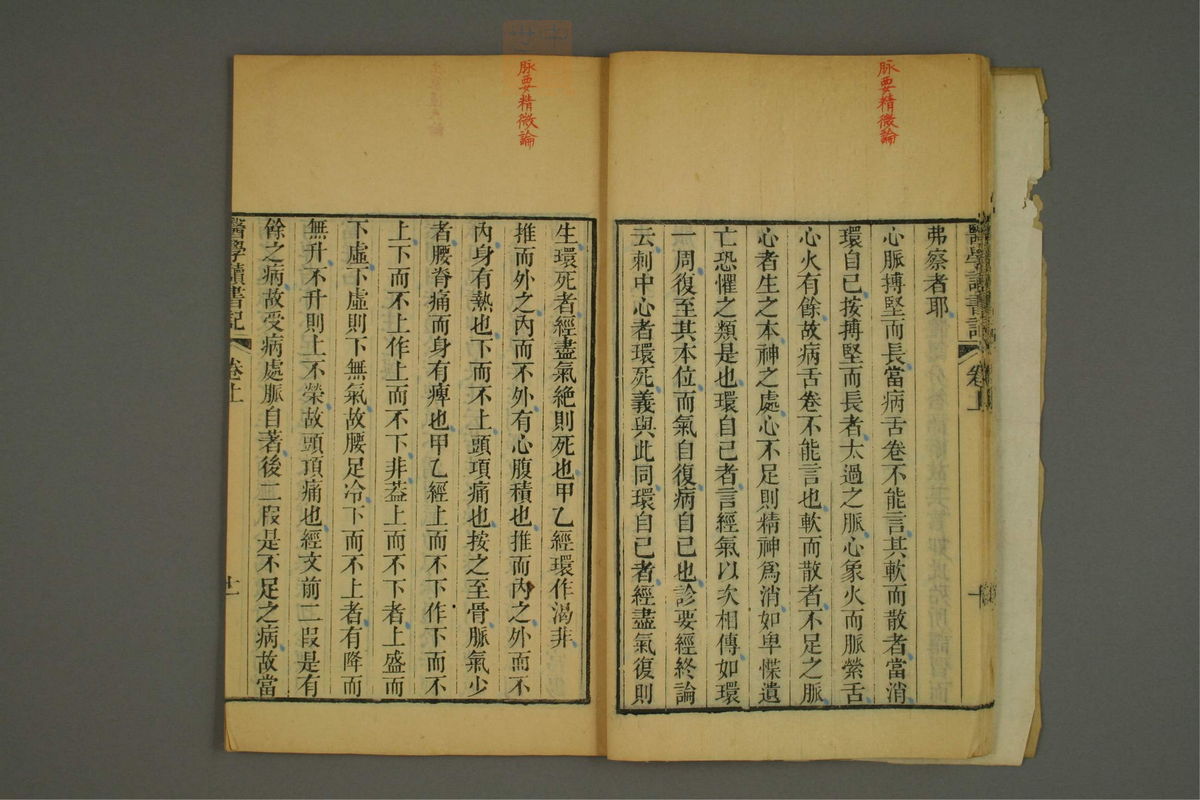 脉要精微論
弗察者耶
心脈搏堅而長當病舌卷不能言其軟而散者當消
環自己按搏堅而長者太過之脈心象火而脈縈舌
心火有餘故病舌卷不能言也軟而散者不足之脈
心者生之本神之處心不足則精神爲消如卑慄遺
亡恐懼之類是也環自己者言經氣以次相傳如環
一周復至其本位而氣自復病自己也診要經終論
云刺中心者環死義與此同環自己者經盡氣復則
脉要精微論
生環死者經盡氣絶則死也甲乙經環作渴非
推而外之內而不外有心腹積也推而內之外而不
內身有熱也下而不上頭項痛也按之至骨脈氣少
者腰脊痛而身有痺也甲乙經上而不下作下而不
上下而不上作上而不下非葢上而不下者上盛而
下虛下虛則下無氣故腰足冷下而不上者有降而
無升不升則上不榮故頭項痛也經文前二叚是有
餘之病故受病處脈自著後二叚是不足之病故當
醫學讀書記
卷上
十一